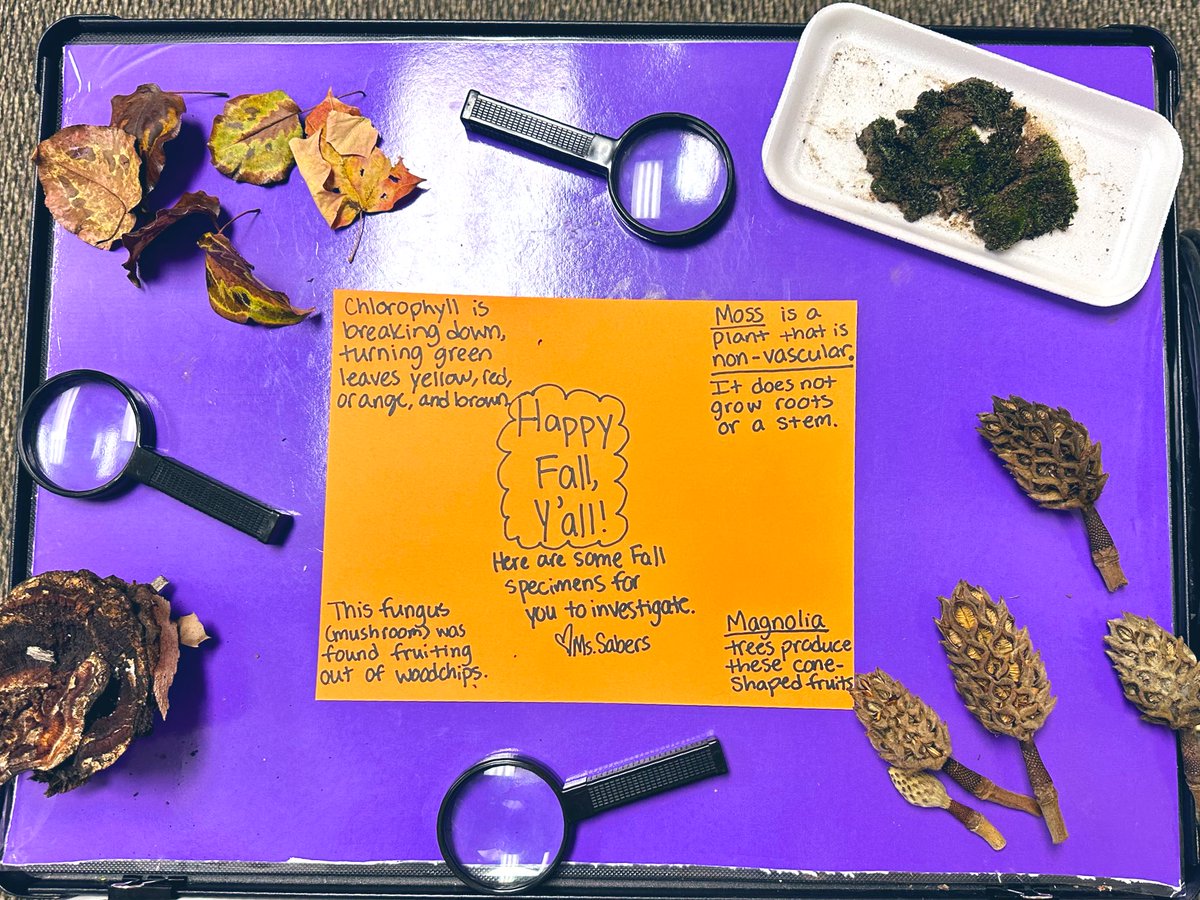 Chlorophyll is
breaking down,
turning green
leaves yellow, red,
orange, and brown.
Moss is a
plant that is
non-vascular.
It does not
grow roots
or a stem.
Happy
Fall,
Y'all!
Here are some Fall
specimens for
you to investigate.
♡Ms. Sabers
This fungus
(mushroom) was
found fruiting
out of woodchips.
Magnolia
trees produce
these cone-
shaped fruits